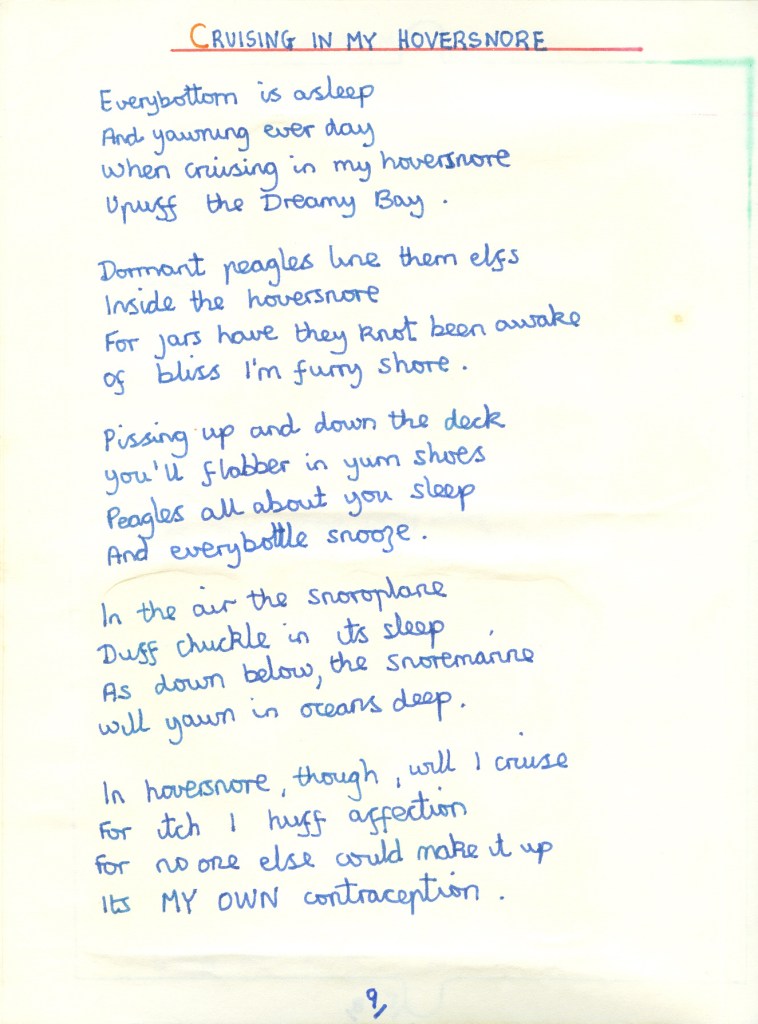 CRUISING IN MY HOVERSNORE
Everybottom is asleep
And yawning ever day
When cruising in my hoversnore
Upuff the Dreamy Bay.
Dormant peagles line them elfs
Inside the hoversnore
For jars have they knot been awake
Of bliss I'm furry shore.
Pissing up and down the deck
You'll flabber in yum shoes
Peagles all about you sleep
And everybottle snooze.
In the air the snoroplane
Duff chuckle in its sleep
As down below, the snoremarine
Will yawn in oceans deep.
In hoversnore, though, will I cruise
For itch I huff affection
For no one else could make it up
Its MY OWN contraception.
9/